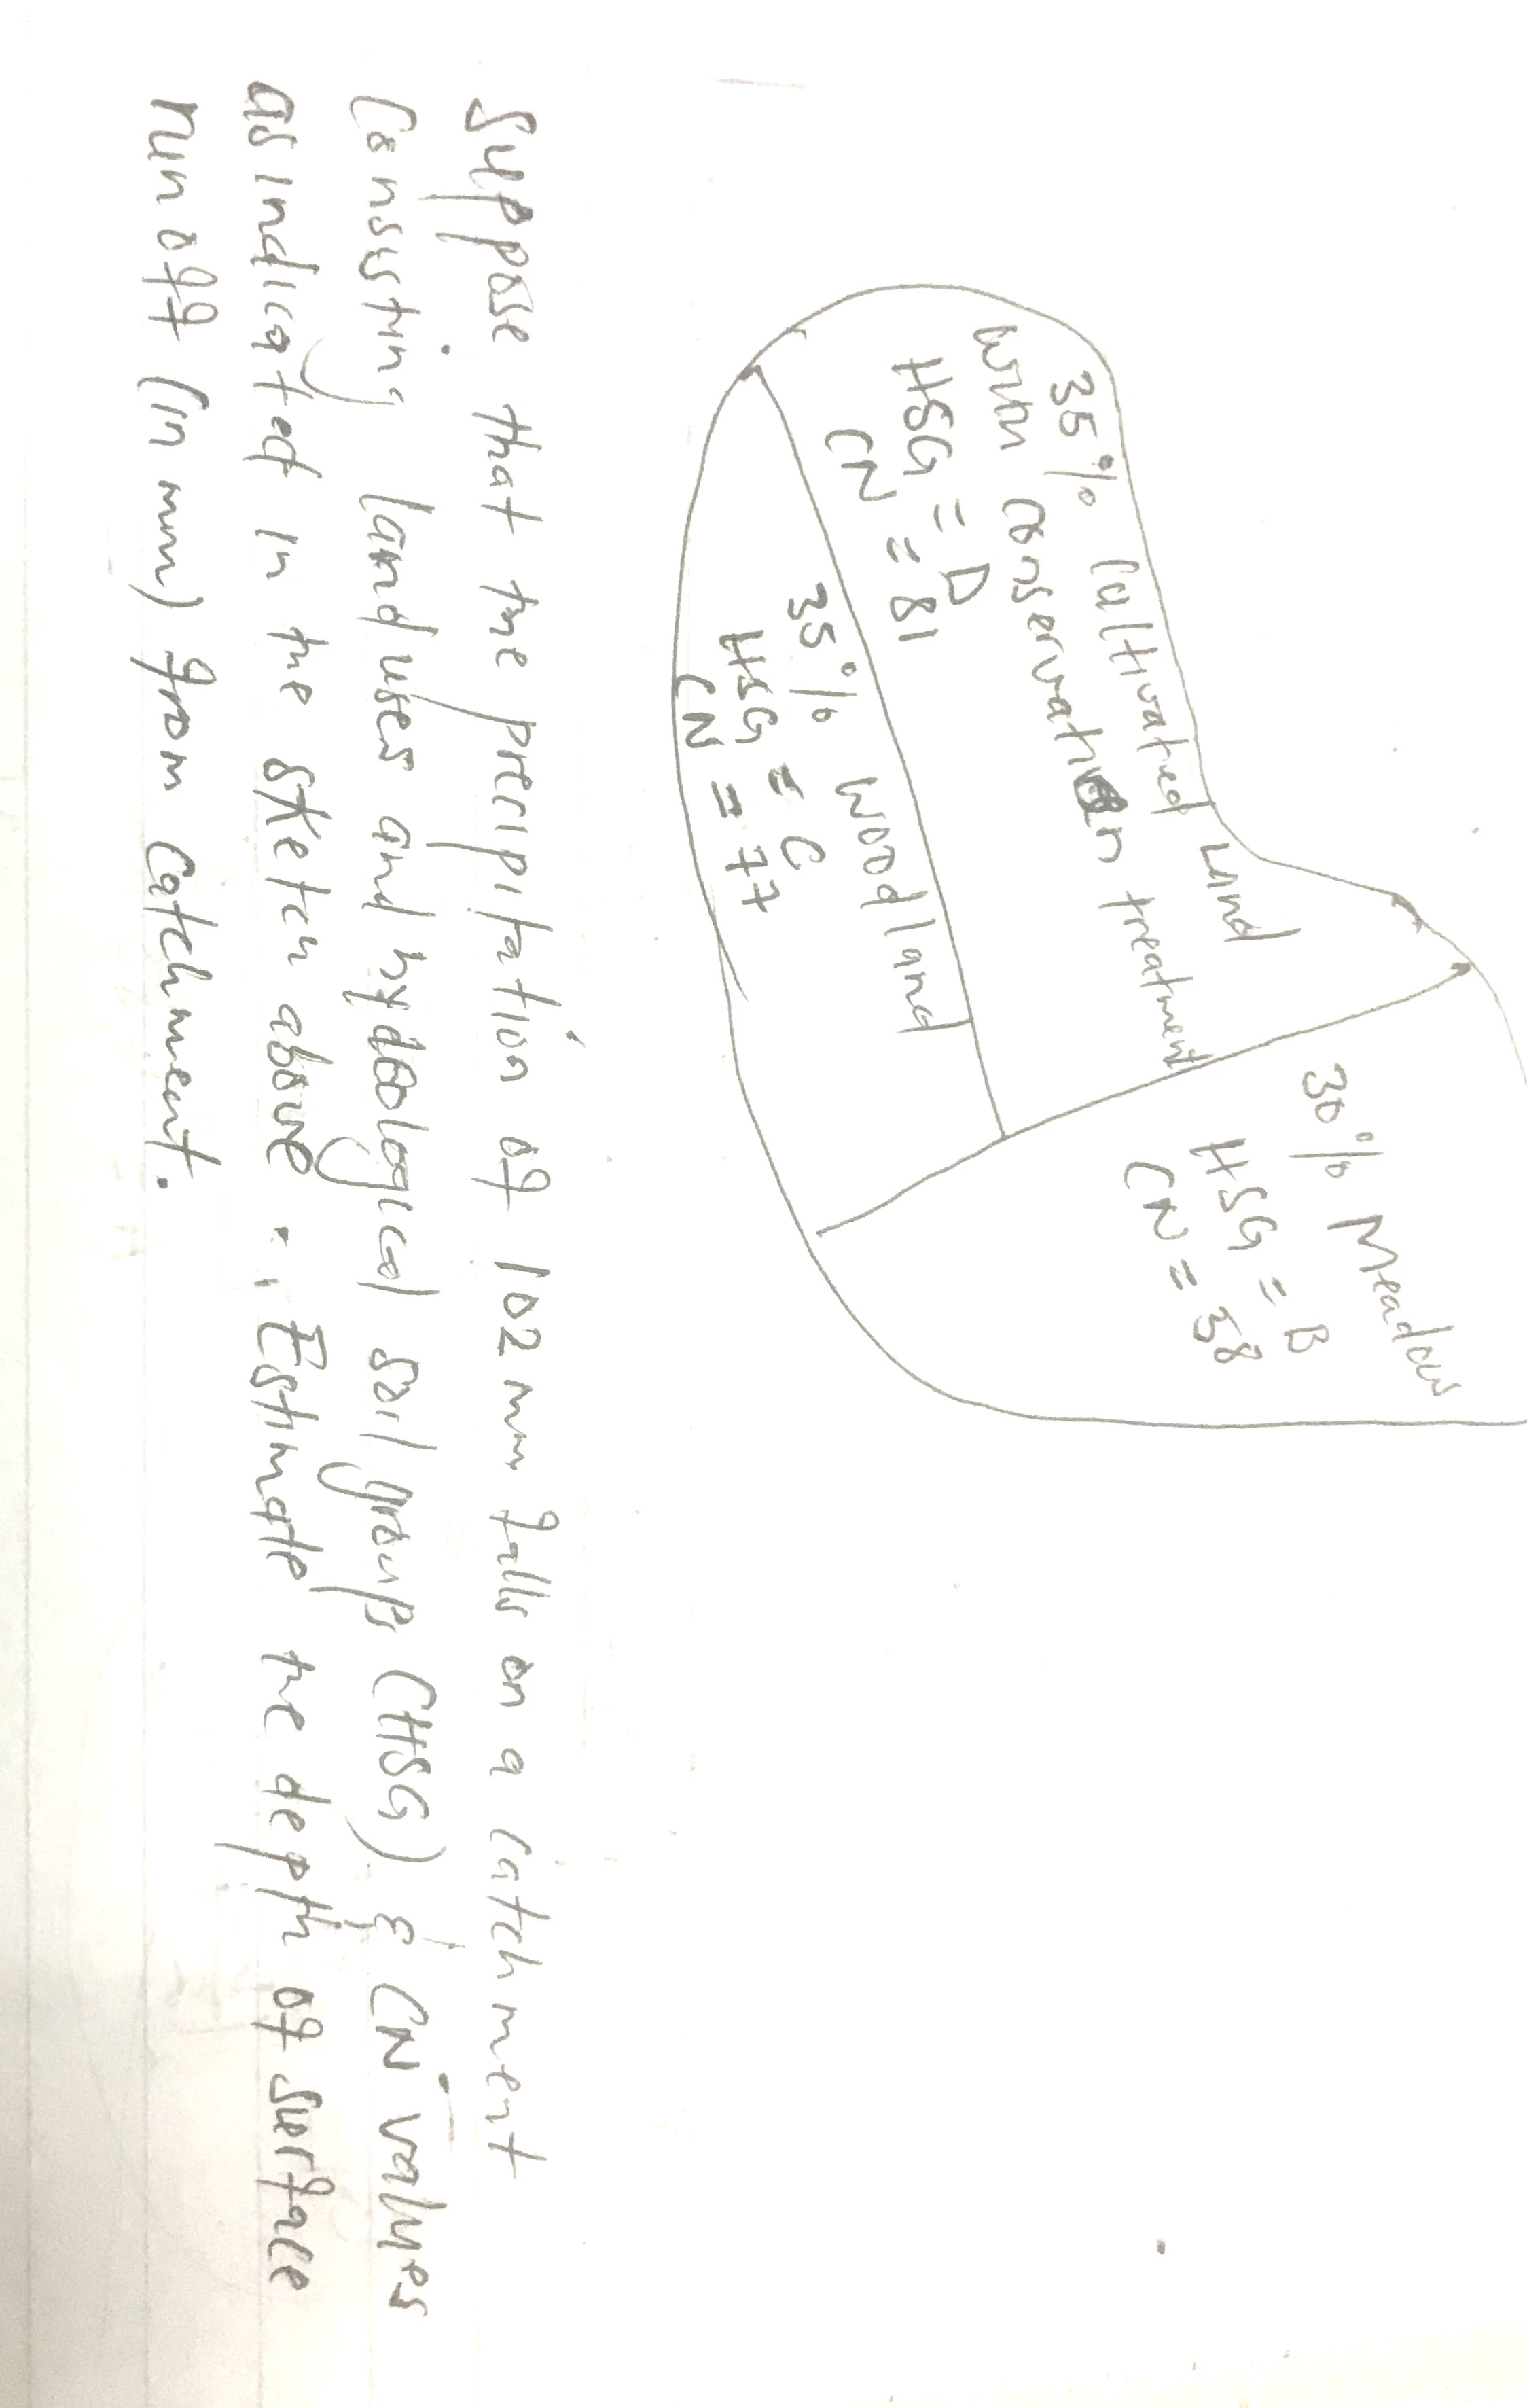 35% Cultivated Land
with conservation treatment
HSG = D
CN = 81
35% Woodland
HSG = C
CN = 77
30% Meadow
HSG = B
CN = 58
Suppose that the precipitation of 102 mm falls on a catchment
Consisting land uses and hydological soil groups (HSG) & CN values
as indicated in the sketch above. Estimate the depth of surface
runoff (in mm) from Catchment.